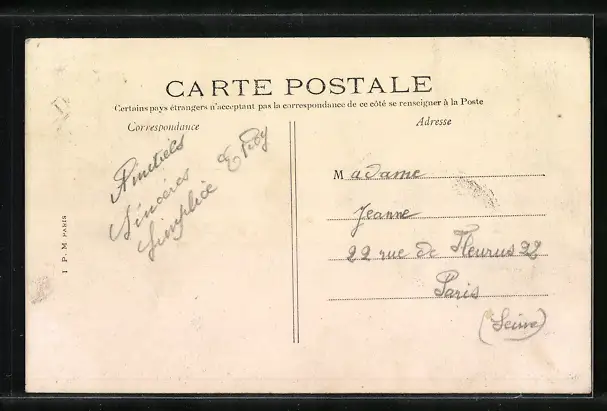 CARTE POSTALE
Certains pays étrangers n'acceptant pas la correspondance de ce côté se renseigner à la Poste
Correspondance
Adresse
Amitiés
Sincères
Simplice
Madame
Jeanne
22 rue de Fleurus 22
Paris
(Seine)
I P. M PARIS